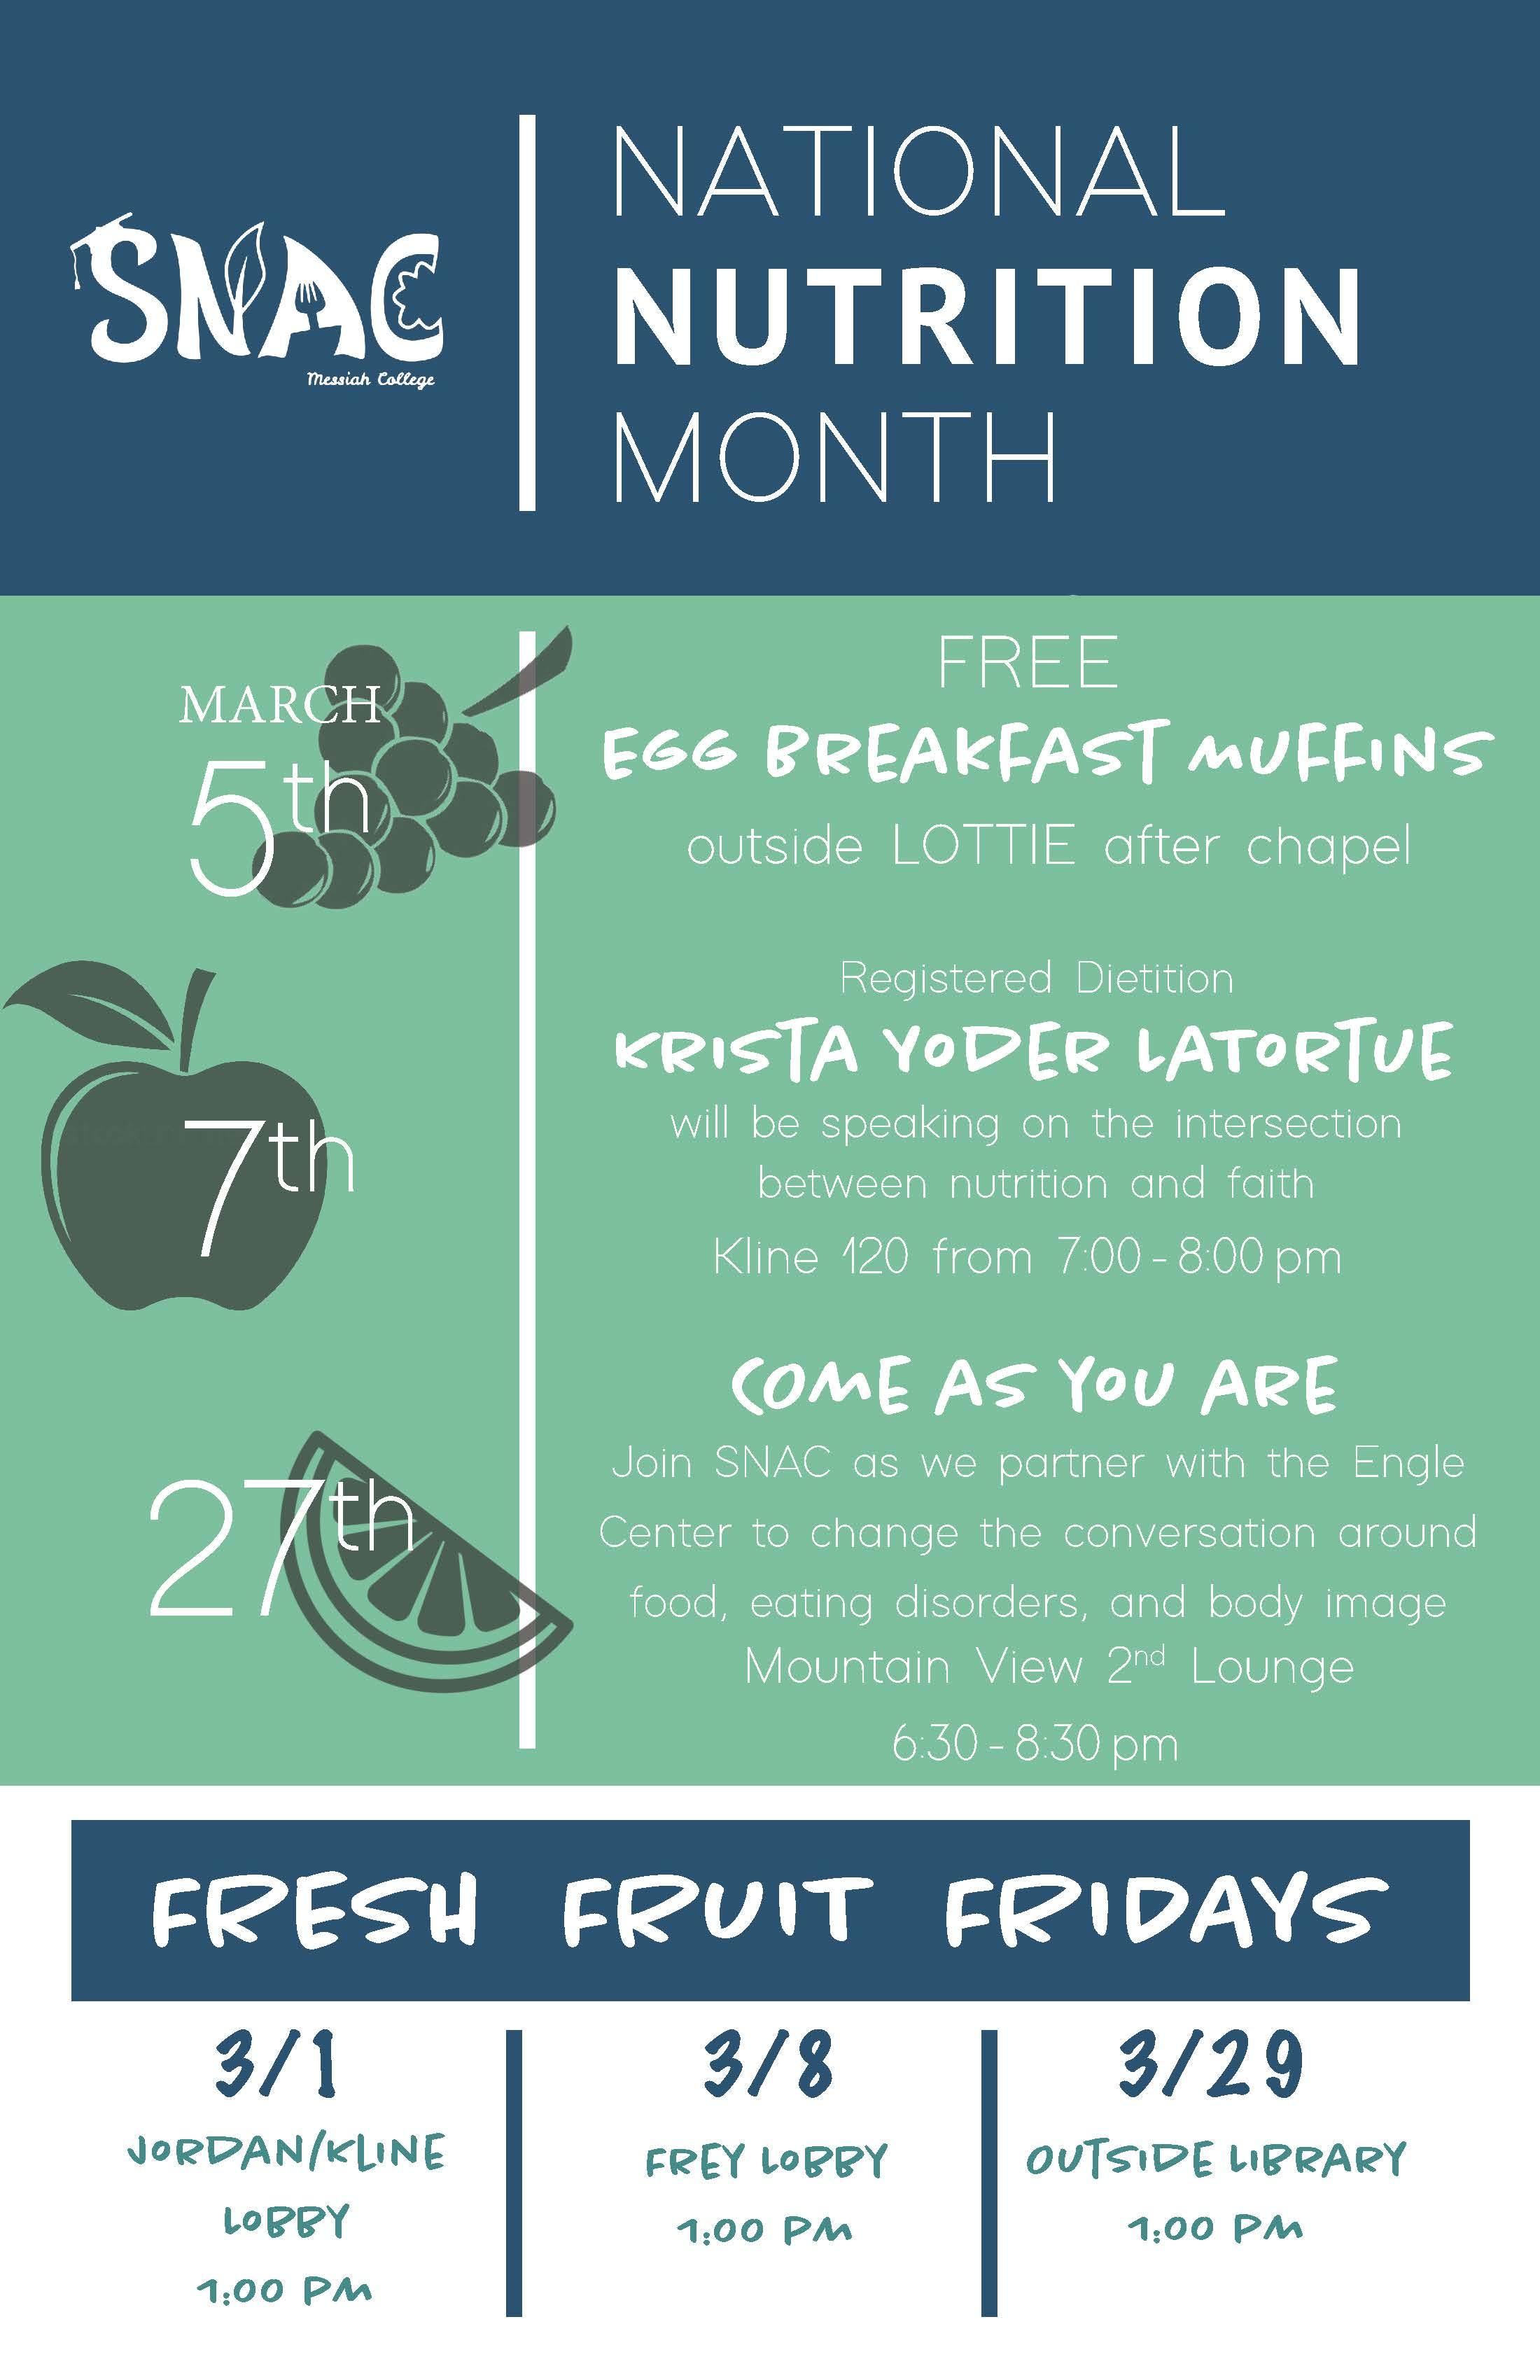 SNAC
Messiah College
NATIONAL
NUTRITION
MONTH
MARCH
5th
FREE
EGG BREAKFAST MUFFINS
outside LOTTIE after chapel
7th
Registered Dietition
KRISTA YODER LATORTUE
will be speaking on the intersection
between nutrition and faith
Kline 120 from 7:00 - 8:00 pm
27th
COME AS YOU ARE
Join SNAC as we partner with the Engle
Center to change the conversation around
food, eating disorders, and body image
Mountain View 2nd Lounge
6:30 - 8:30 pm
FRESH FRUIT FRIDAYS
3/1
JORDAN/KLINE
LOBBY
1:00 PM
3/8
FREY LOBBY
1:00 PM
3/29
OUTSIDE LIBRARY
1:00 PM